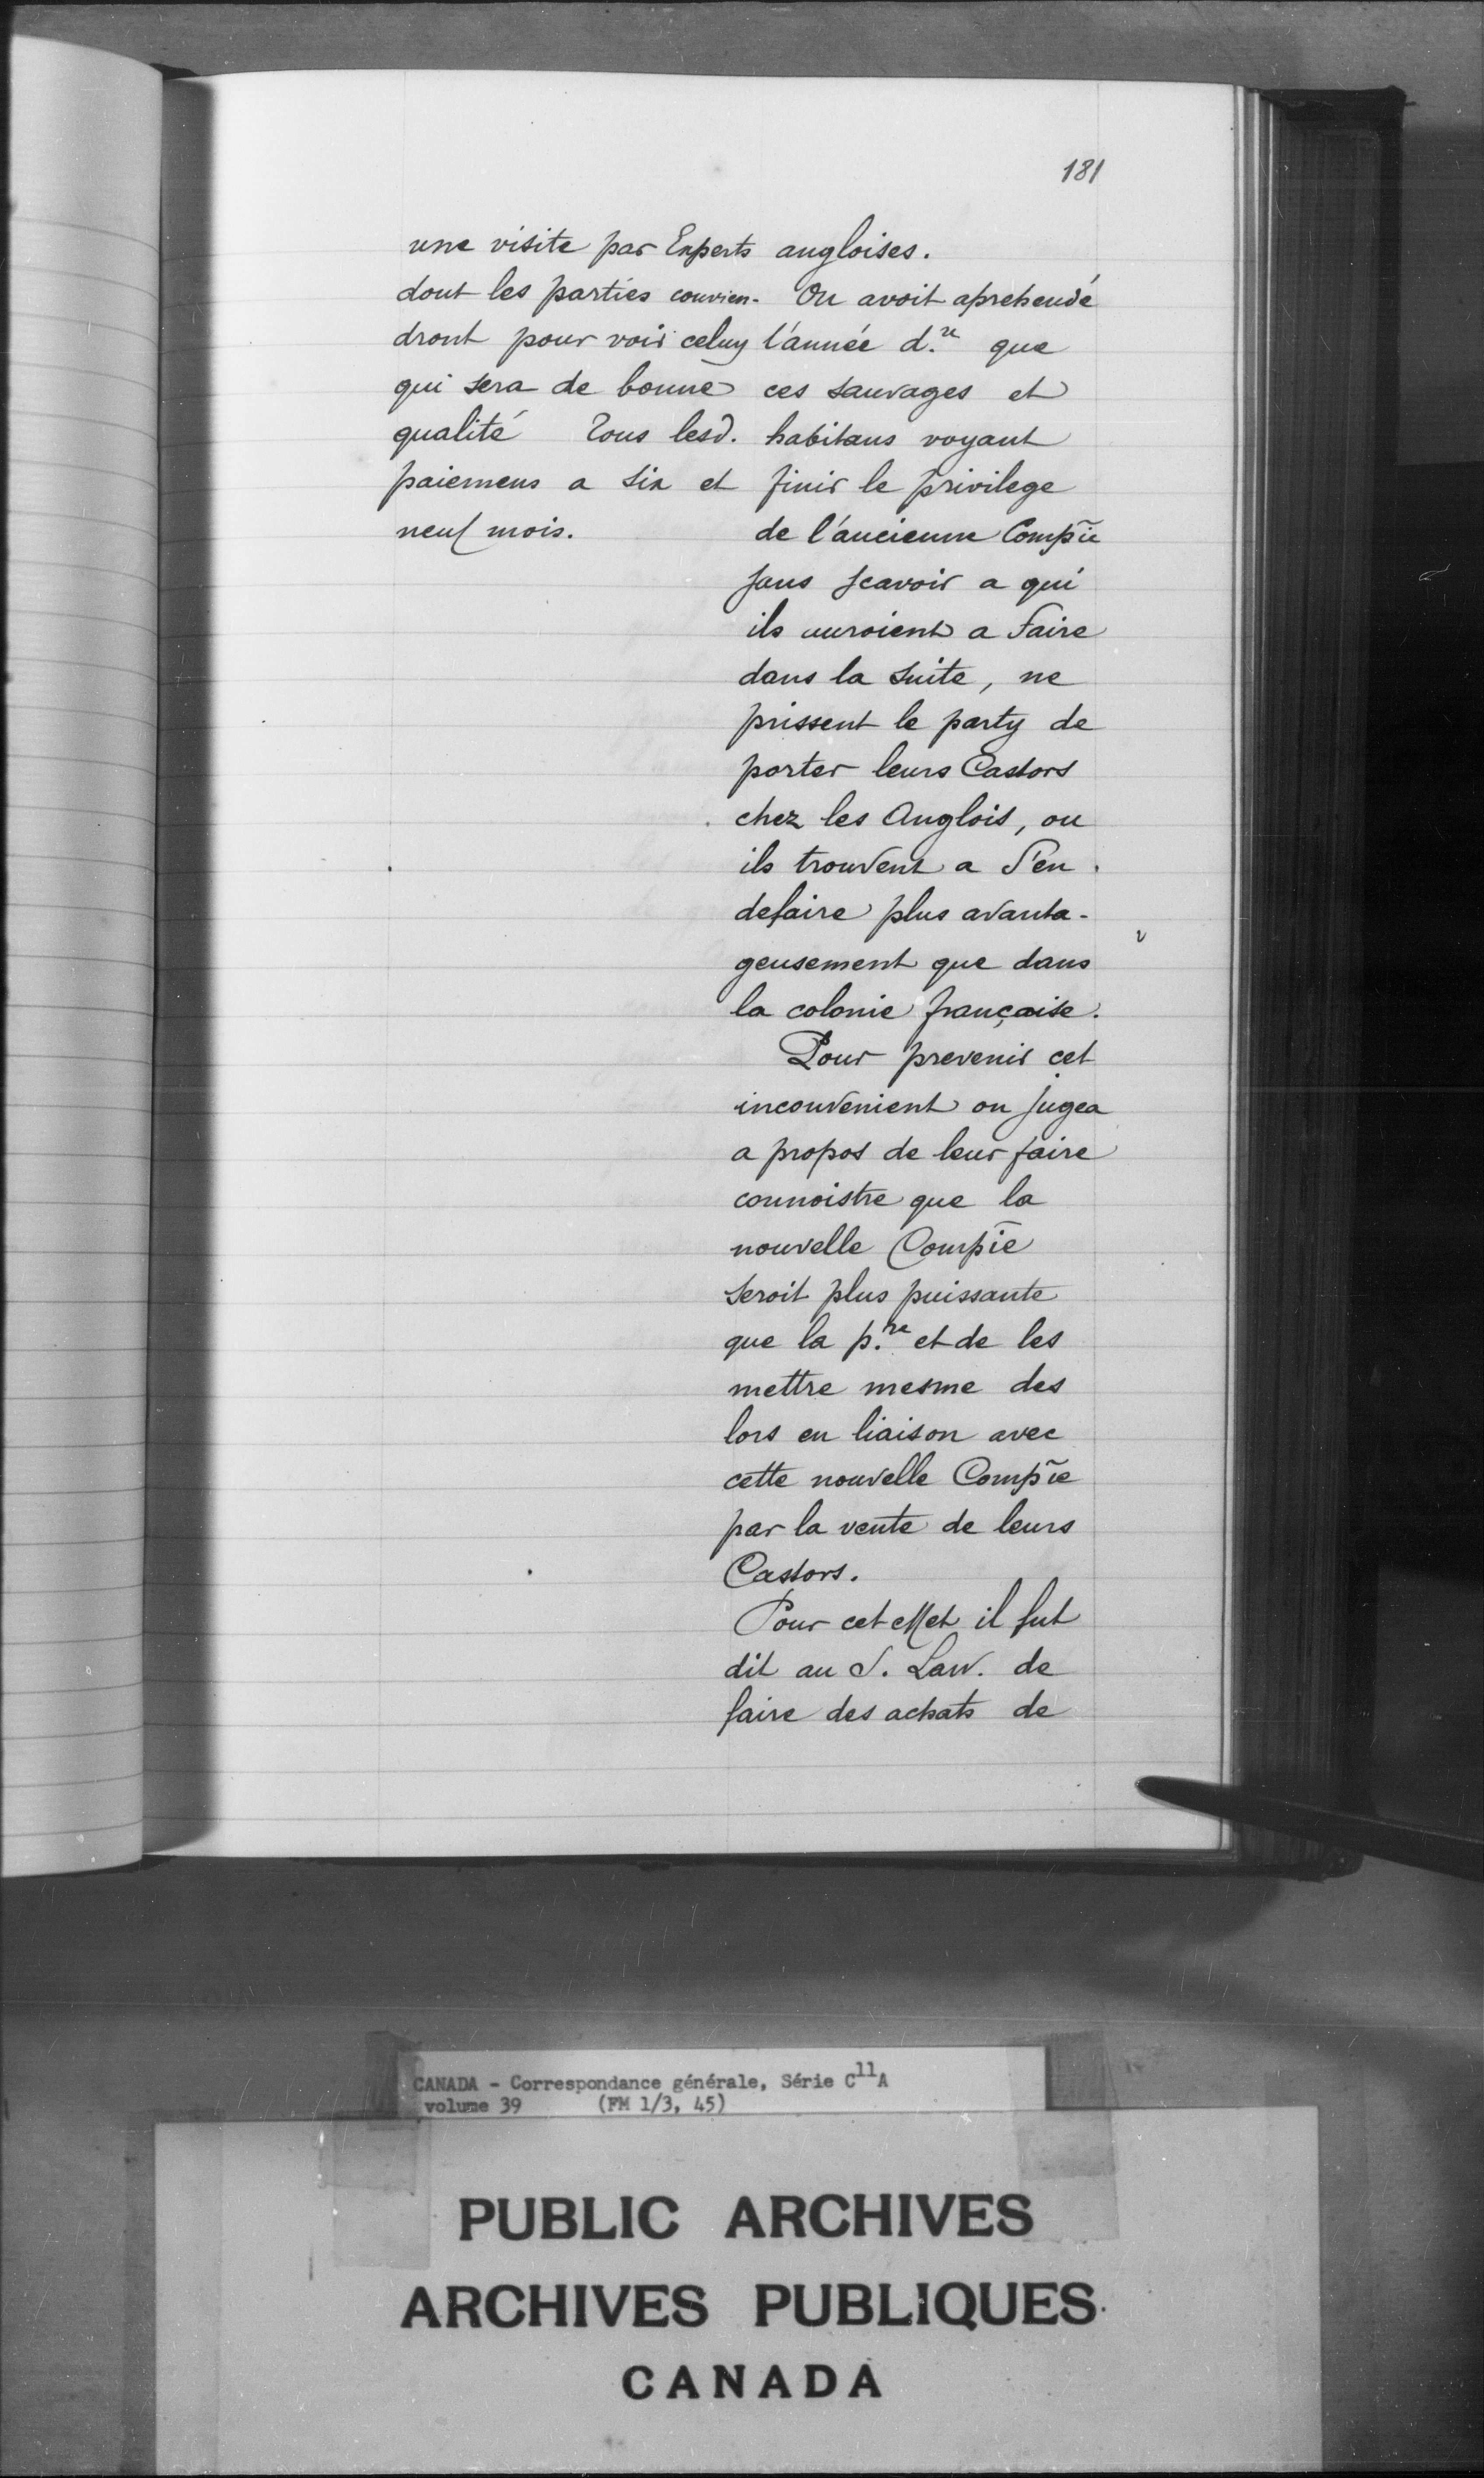 181
une visite par Experts
dont les parties convien-
dront pour voir celuy
qui sera de bonne
qualité Tous lesd.
paiemens a six et
neuf mois.
angloises.
On avoit aprehendé
l'année d.re que
ces sauvages et
habitans voyant
finir le privilege
de l'ancienne Compie
sans scavoir a qui
ils auroient a faire
dans la suite, ne
prissent le party de
porter leurs Castors
chez les Anglois, ou
ils trouvent a s'en
defaire plus avanta-
geusement que dans
la colonie française.
Pour prevenir cet
inconvenient on jugea
a propos de leur faire
connoistre que la
nouvelle Compie
seroit plus puissante
que la p.re et de les
mettre mesme des
lors en liaison avec
cette nouvelle Compie
par la vente de leurs
Castors.
Pour cet effet il fut
dit au S. Law. de
faire des achats de
CANADA - Correspondance générale, Série C11A
volume 39 (FM 1/3, 45)
PUBLIC ARCHIVES
ARCHIVES PUBLIQUES
CANADA